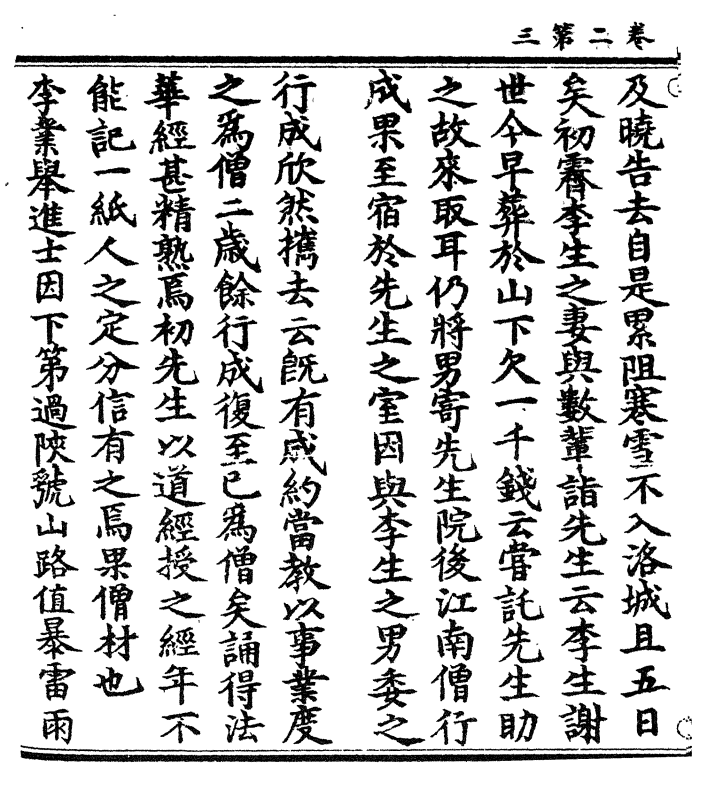 卷二第三
及曉告去自是累阻寒雪不入洛城且五日
矣初霽李生之妻與數輩詣先生云李生謝
世今早葬於山下欠一千錢云嘗託先生助
之故來取耳仍將男寄先生院後江南僧行
成果至宿於先生之室因與李生之男委之
行成欣然擕去云旣有成約當教以事業度
之爲僧二歲餘行成復至已爲僧矣誦得法
華經甚精熟焉初先生以道經授之經年不
能記一紙人之定分信有之焉果僧材也
李業舉進士因下第過陝虢山路值暴雷雨